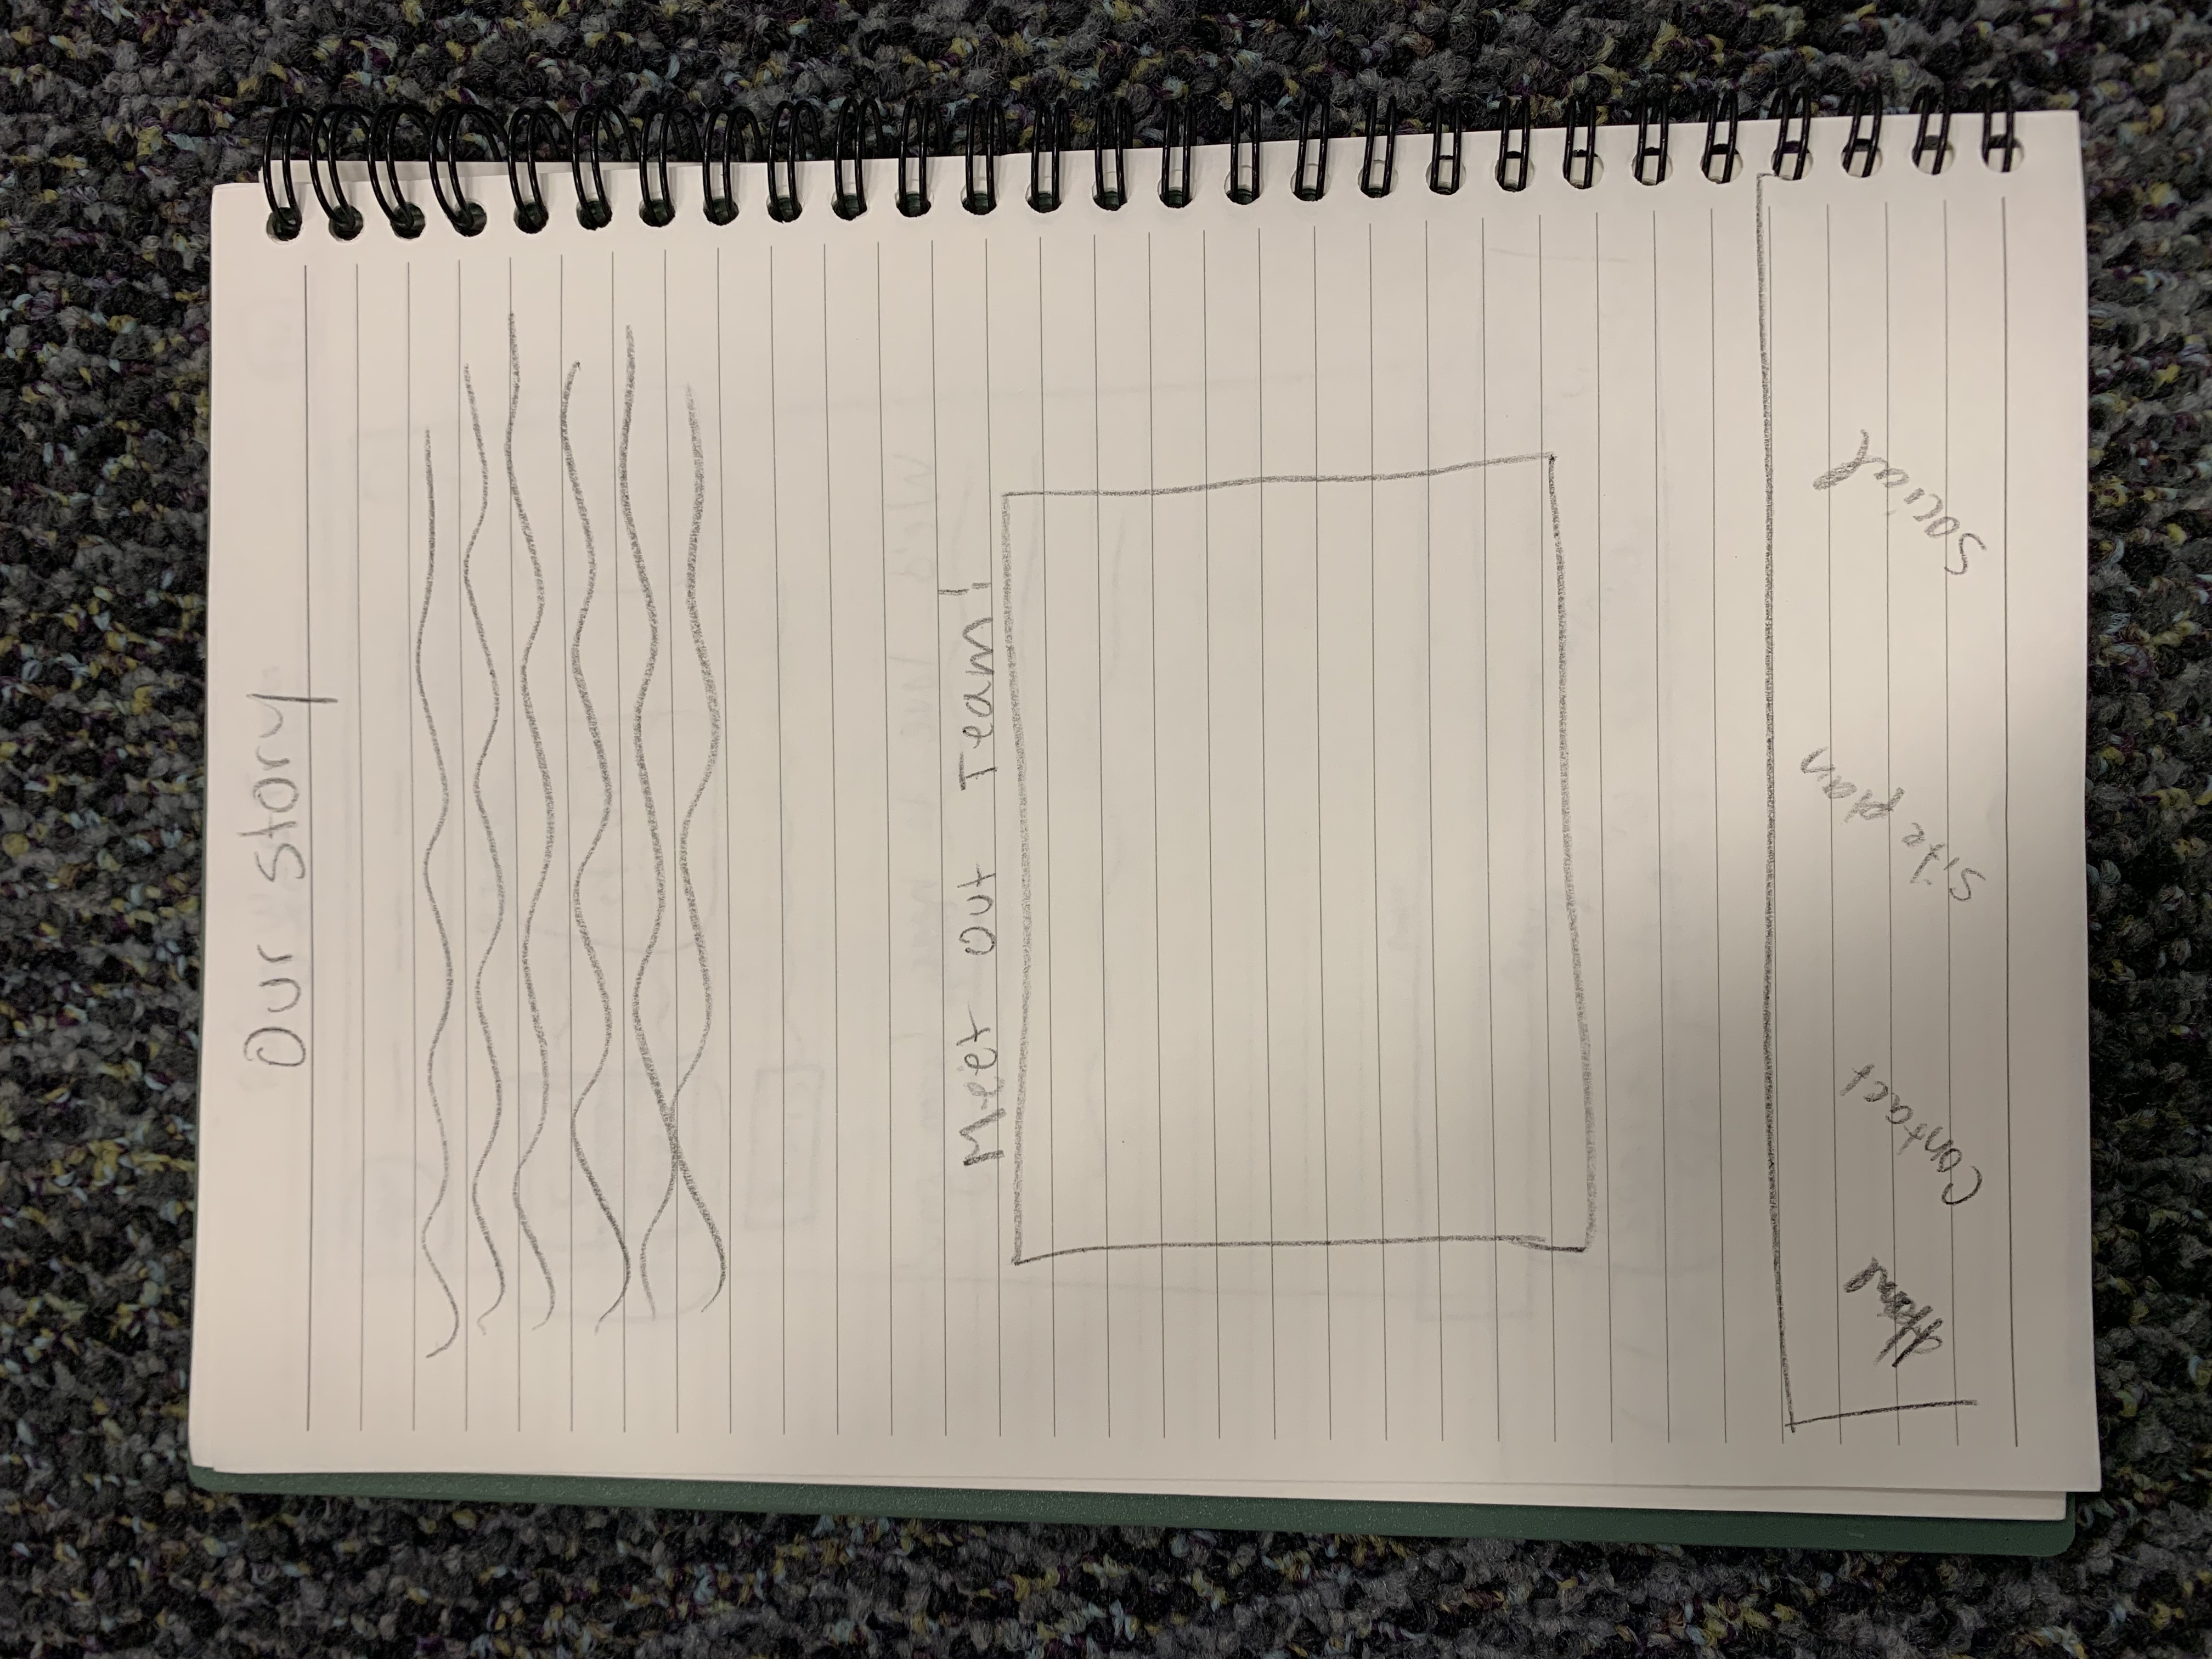 Our story
Meet Out Team!
Contact
Site plan
Social